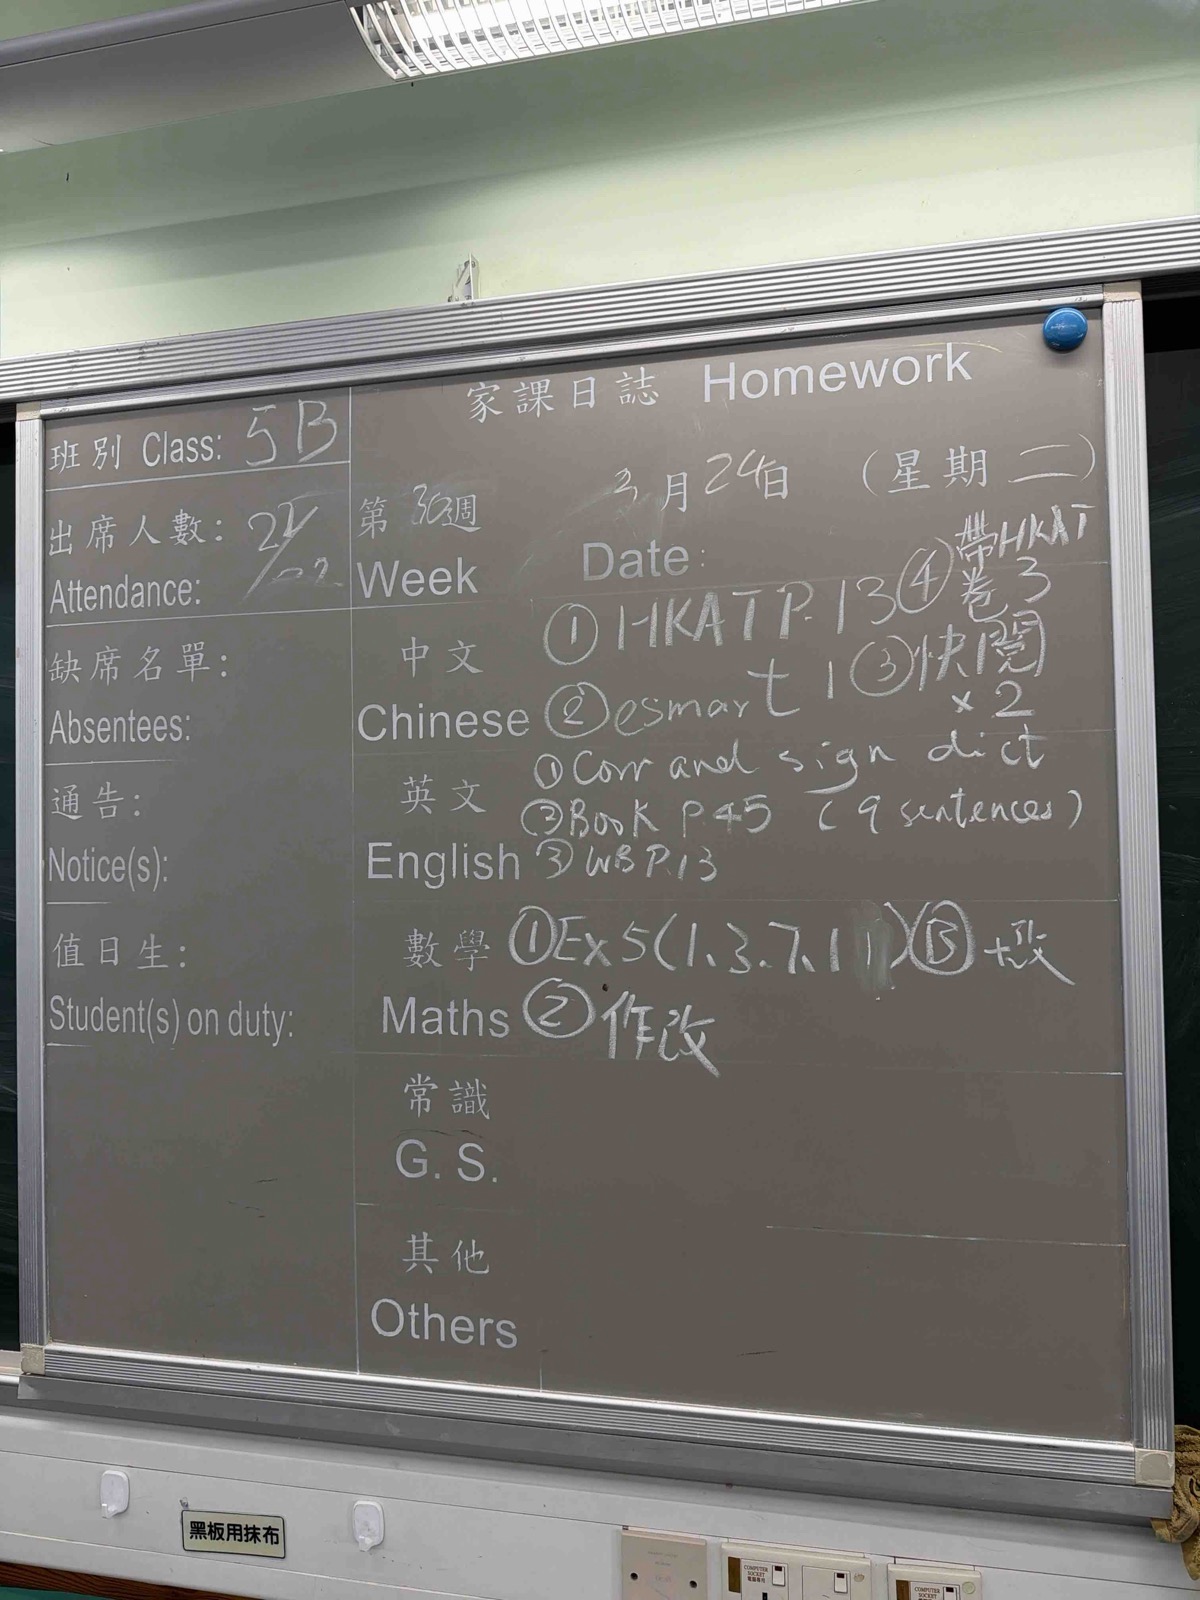 家課日誌 Homework
班別 Class: 5B
出席人數:
Attendance:
缺席名單:
Absentees:
通告:
Notice(s):
值日生:
Student(s) on duty:
第30週 3月24日 (星期二)
Week Date:
中文 ① HKAT P.13 ④ 帶HKAT卷3
Chinese ② esmart 1 ③ 快閱 x2
英文 ① Corr and sign dict
② Book P.45 (9 sentences)
English ③ WB P.13
數學 ① Ex5(1、3、7、11) Ⓑ +改
Maths ② 作改
常識
G. S.
其他
Others
黑板用抹布
COMPUTER SOCKET
COMPUTER SOCKET